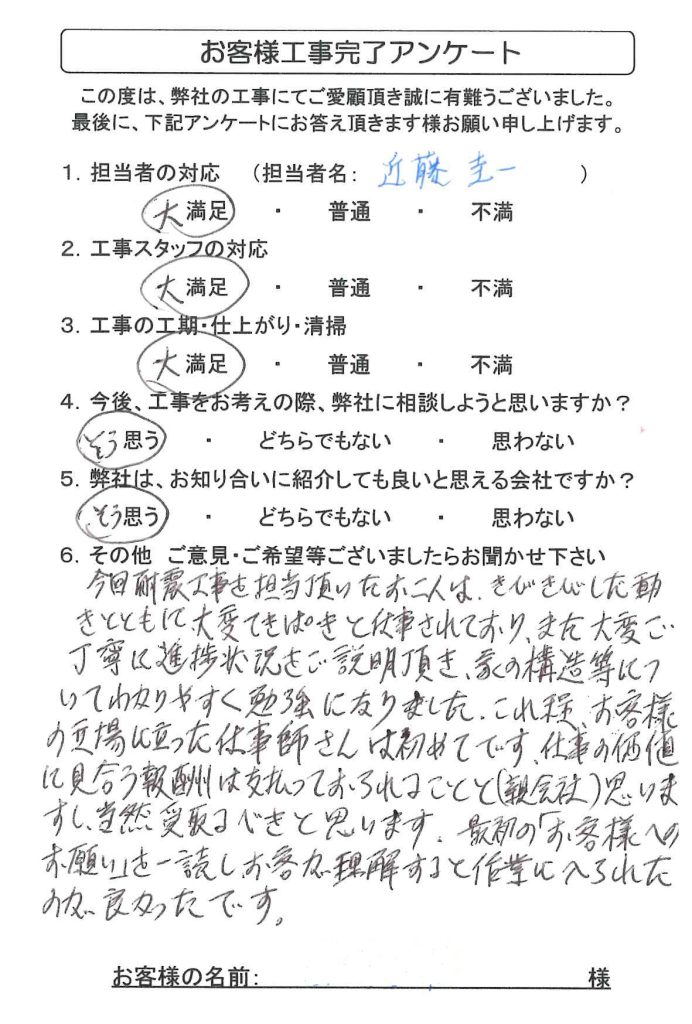 お客様工事完了アンケート
この度は、弊社の工事にてご愛顧頂き誠に有難うございました。
最後に、下記アンケートにお答え頂きます様お願い申し上げます。
1. 担当者の対応 （担当者名： 近藤 圭一 ）
大満足 ・ 普通 ・ 不満
2. 工事スタッフの対応
大満足 ・ 普通 ・ 不満
3. 工事の工期・仕上がり・清掃
大満足 ・ 普通 ・ 不満
4. 今後、工事をお考えの際、弊社に相談しようと思いますか？
そう思う ・ どちらでもない ・ 思わない
5. 弊社は、お知り合いに紹介しても良いと思える会社ですか？
そう思う ・ どちらでもない ・ 思わない
6. その他 ご意見・ご希望等ございましたらお聞かせ下さい
今回耐震工事を担当頂いたお二人は、きびきびした動
きとともに大変てきぱきと仕事されており、また大変ご
丁寧に進捗状況をご説明頂き、家の構造等につ
いてわかりやすく勉強になりました。これ程、お客様
の立場に立った仕事師さんは初めてです。仕事の価値
に見合う報酬は支払っておられることと(親会社)思いま
すし、当然受取るべきと思います。最初の「お客様への
お願い」を一読しお客が理解すると作業に入られた
のが良かったです。
お客様の名前： 様